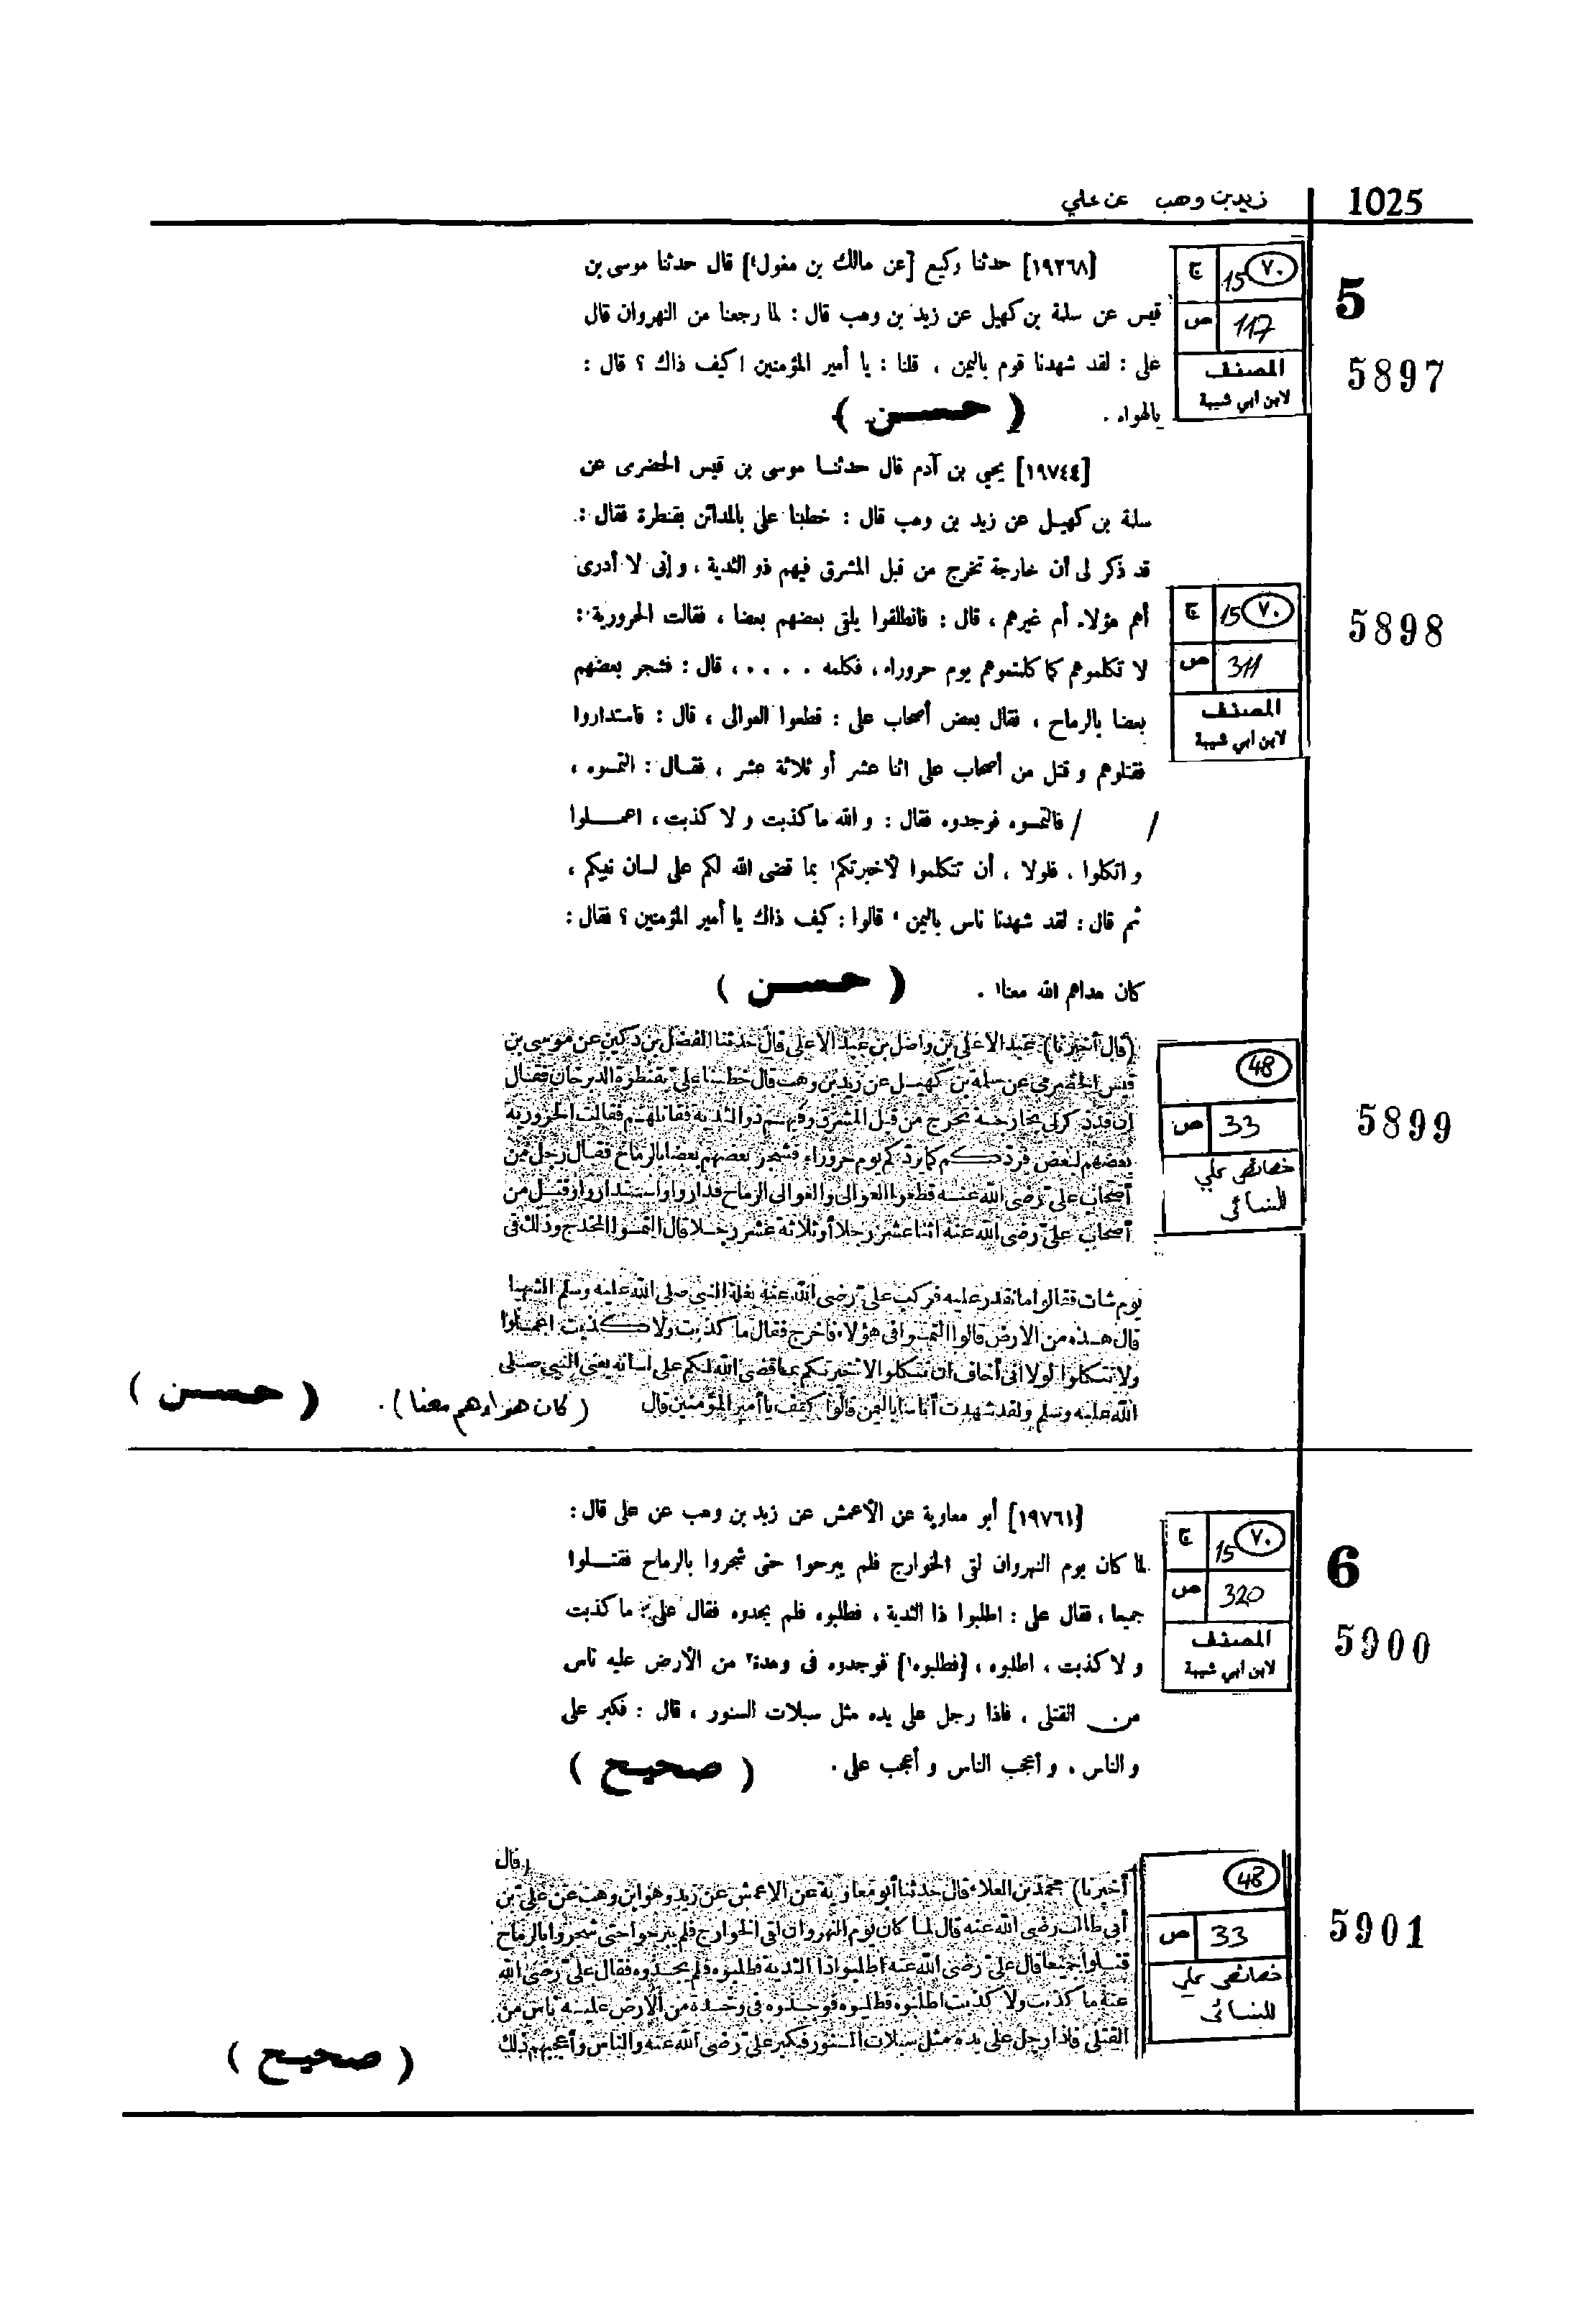 1025
زيد بن وهب عن علي
5
5897
ج 15 ٧٠
ص 117
المصنف
لابن ابي شيبة
[١٩٢٦٨] حدثنا وكيع [عن مالك بن مغول¹] قال حدثنا موسى بن
قيس عن سلمة بن كهيل عن زيد بن وهب قال : لما رجعنا من النهروان قال
على : لقد شهدنا قوم باليمن ، قلنا : يا أمير المؤمنين ! كيف ذاك ؟ قال :
بالهواء .
( حسن )
5898
ج 15 ٧٠
ص 311
المصنف
لابن ابي شيبة
[١٩٧٤٤] يحيى بن آدم قال حدثنا موسى بن قيس الحضرى عن
سلمة بن كهيل عن زيد بن وهب قال : خطبنا على بالمدائن بقنطرة فقال :
قد ذكر لى أن خارجة تخرج من قبل المشرق فيهم ذو الثدية ، و إنى لا أدرى
أهم هؤلاء أم غيرهم ، قال : فانطلقوا يلقى بعضهم بعضا ، فقالت الحرورية :
لا تكلموهم كما كلمتموهم يوم حروراء ، فكلمه . . . . ، قال : فشجر بعضهم
بعضا بالرماح ، فقال بعض أصحاب على : قطعوا العوالى ، قال : فاستداروا
فقتلوهم و قتل من أصحاب على اثنا عشر أو ثلاثة عشر ، فقال : التمسوه ،
/ / فالتمسوه فوجدوه فقال : و الله ما كذبت و لا كذبت ، اعملوا
و اتكلوا ، فلولا ، أن تتكلموا لأخبرتكم ¹ بما قضى الله لكم على لسان نبيكم ،
ثم قال : لقد شهدنا ناس باليمن ، قالوا : كيف ذاك يا أمير المؤمنين ؟ فقال :
كان هداهم الله معنا ¹ .
( حسن )
5899
48
ص 33
خصائص علي
للنسائى
(قال أخبرنا) عبد الاعلى بن واصل بن عبد الاعلى قال حدثنا الفضل بن دكين عن موسى بن
قيس الحضرمى عن سلمة بن كهيل عن زيد بن وهب قال خطبنا على بقنطرة الديرجان فقال
ان قد ذكر لى بخارجة تخرج من قبل المشرق وفيهم ذو الثدية فقاتلهم فقالت الحرورية
بعضهم لبعض فردكم كما يردكم يوم حروراء فشجر بعضهم بعضا بالرماح فقال رجل من
أصحاب على رضى الله عنه قطعوا العوالى والعوالى الرماح فداروا واستداروا وقتل من
أصحاب على رضى الله عنه اثنا عشر رجلا أو ثلاثة عشر رجلا قال التمسوا المخدج وذلك فى
يوم شات فقالوا ما نقدر عليه فركب على رضى الله عنه بغلة النبى صلى الله عليه وسلم الشهبا
قال هذه من الارض قالوا التمسوا فى هؤلاء فأخرج فقال ما كذبت ولا كذبت اعملوا
ولا تتكلوا لولا انى أخاف ان تتكلوا لاخبرتكم بما قضى الله لكم على لسانه يعنى النبى صلى
الله عليه وسلم ولقد شهدت أناسا باليمن قالوا كيف يا أمير المؤمنين قال (كان هواءهم معنا) .
( حسن )
6
5900
ج 15 ٧٠
ص 320
المصنف
لابن ابي شيبة
[١٩٧٦١] أبو معاوية عن الأعمش عن زيد بن وهب عن على قال :
لما كان يوم النهروان لقى الخوارج فلم يبرحوا حتى شجروا بالرماح فقتلوا
جميعا ، فقال على : اطلبوا ذا الثدية ، فطلبوه فلم يجدوه فقال على : ما كذبت
و لا كذبت ، اطلبوه ، [فطلبوه ¹] فوجدوه فى وهدة ² من الأرض عليه ناس
من القتلى ، فاذا رجل على يده مثل سبلات السنور ، قال : فكبر على
و الناس ، و أعجب الناس و أعجب على .
( صحيح )
5901
48
ص 33
خصائص علي
للنسائى
(قال
أخبرنا) محمد بن العلاء قال حدثنا أبو معاوية عن الاعمش عن زيد وهو ابن وهب عن على بن
أبى طالب رضى الله عنه قال لما كان يوم النهروان لقى الخوارج فلم يبرحوا حتى شجروا بالرماح
قتلوا جميعا قال على رضى الله عنه اطلبوا ذا الثدية فطلبوه فلم يجدوه فقال على رضى الله
عنه ما كذبت ولا كذبت اطلبوه فطلبوه فوجدوه فى وهدة من الارض عليه ناس من
القتلى فاذا رجل على يده مثل سبلات السنور فكبر على رضى الله عنه والناس وأعجبهم ذلك
( صحيح )